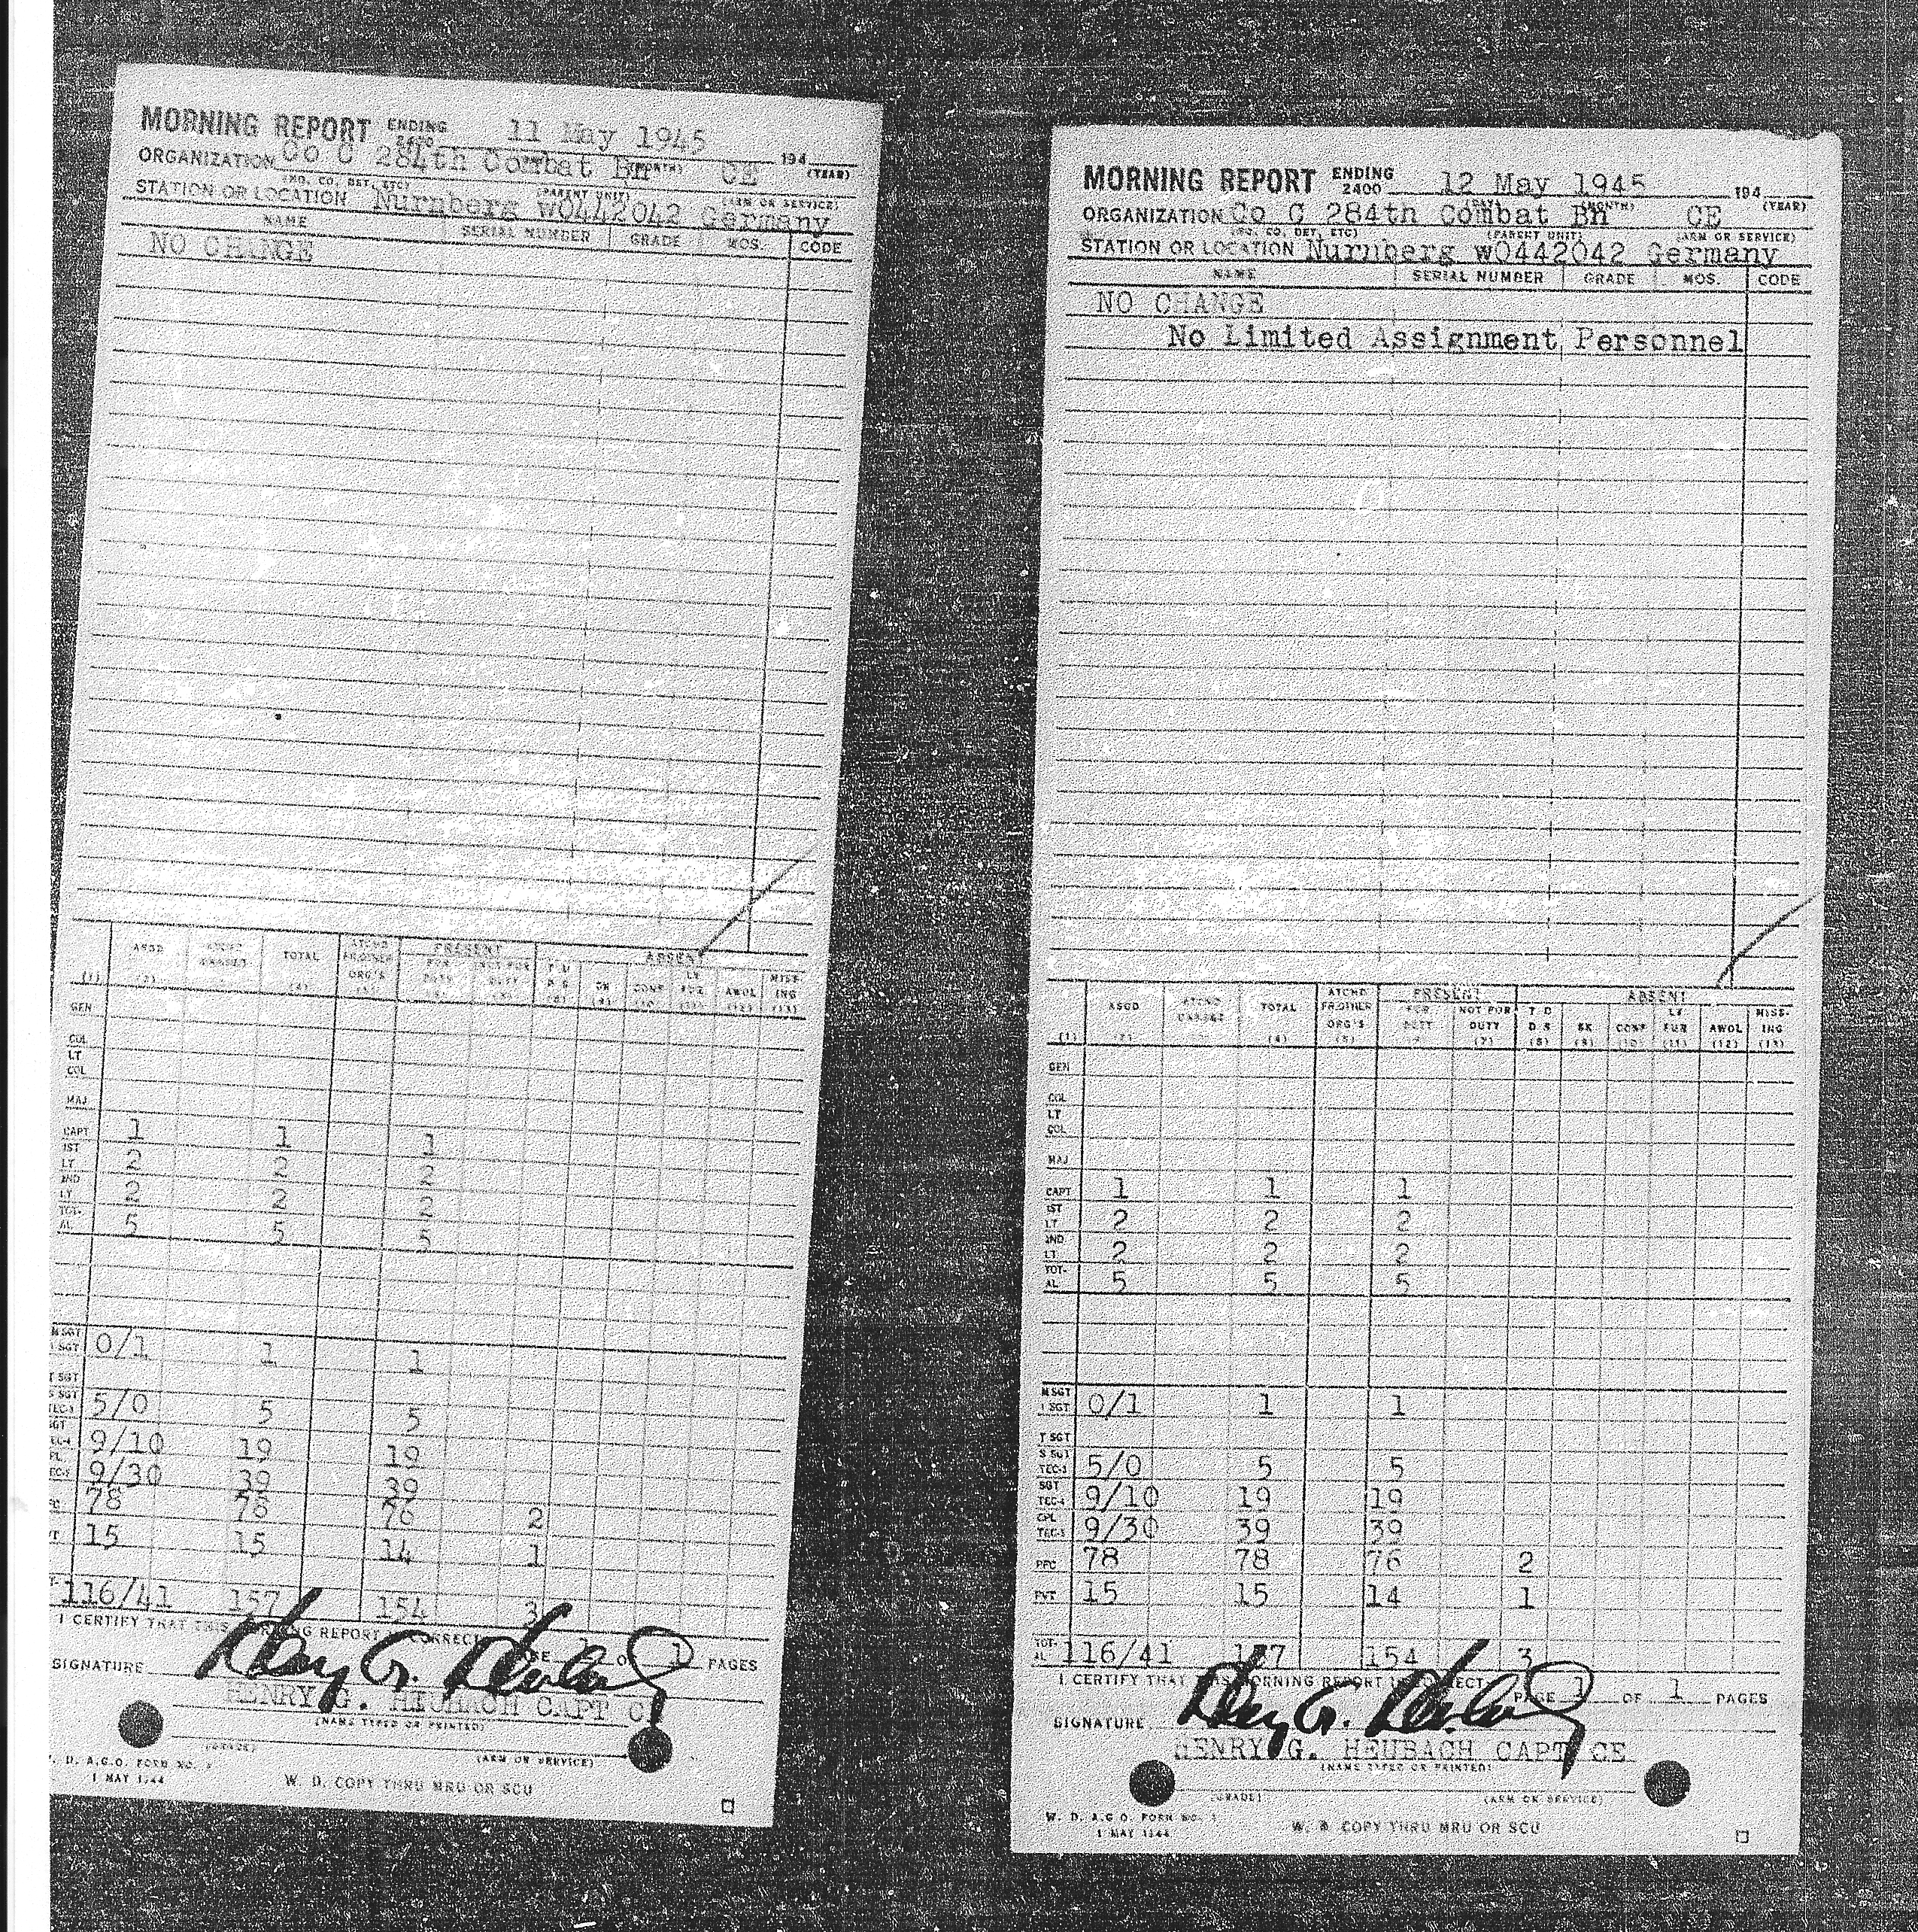 MORNING REPORT ENDING 2400 11 May 1945 194
ORGANIZATION Co C 284th Combat Bn CE (YEAR)
(HQ. CO. DET, ETC) (PARENT UNIT) (ARM OR SERVICE)
STATION OR LOCATION Nurnberg w0442042 Germany
NAME SERIAL NUMBER GRADE MOS. CODE
NO CHANGE
ASGD TOTAL ATCHD FR OTHER ORG'S PRESENT FOR DUTY NOT FOR DUTY ABSENT T D D S SK CONF LV FUR AWOL MISS- ING
(1) (2) (4)
GEN
COL
LT
COL
MAJ
CAPT 1 1 1
1ST LT 2 2 2
2ND LT 2 2 2
TOT- AL 5 5 5
M SGT 1 SGT 0/1 1 1
T SGT
S SGT TEC-3 5/0 5 5
SGT TEC-4 9/10 19 19
CPL TEC-5 9/30 39 39
78 78 76 2
15 15 14 1
116/41 157 154 3
I CERTIFY THAT THIS MORNING REPORT IS CORRECT PAGE 1 OF 1 PAGES
SIGNATURE Henry G. Heubach
HENRY G. HEUBACH CAPT CE
(NAME TYPED OR PRINTED)
(GRADE) (ARM OR SERVICE)
W. D. A.G.O. FORM NO. 1
1 MAY 1944 W. D. COPY THRU MRU OR SCU
MORNING REPORT ENDING 2400 12 May 1945 194
ORGANIZATION Co C 284th Combat Bn CE (YEAR)
(HQ. CO. DET, ETC) (PARENT UNIT) (ARM OR SERVICE)
STATION OR LOCATION Nurnberg w0442042 Germany
NAME SERIAL NUMBER GRADE MOS. CODE
NO CHANGE
No Limited Assignment Personnel
ASGD TOTAL ATCHD FR OTHER ORG'S PRESENT FOR DUTY NOT FOR DUTY ABSENT T D D S SK CONF LV FUR AWOL MISS- ING
(1) (2) (4) (5) (7) (8) (9) (10) (11) (12) (13)
GEN
COL
LT
COL
MAJ
CAPT 1 1 1
1ST LT 2 2 2
2ND LT 2 2 2
TOT- AL 5 5 5
M SGT 1 SGT 0/1 1 1
T SGT
S SGT TEC-3 5/0 5 5
SGT TEC-4 9/10 19 19
CPL TEC-5 9/30 39 39
PFC 78 78 76 2
PVT 15 15 14 1
TOT- AL 116/41 157 154 3
I CERTIFY THAT THIS MORNING REPORT IS CORRECT PAGE 1 OF 1 PAGES
SIGNATURE Henry G. Heubach
HENRY G. HEUBACH CAPT CE
(NAME TYPED OR PRINTED)
(GRADE) (ARM OR SERVICE)
W. D. A.G.O. FORM NO. 1
1 MAY 1944 W. D. COPY THRU MRU OR SCU